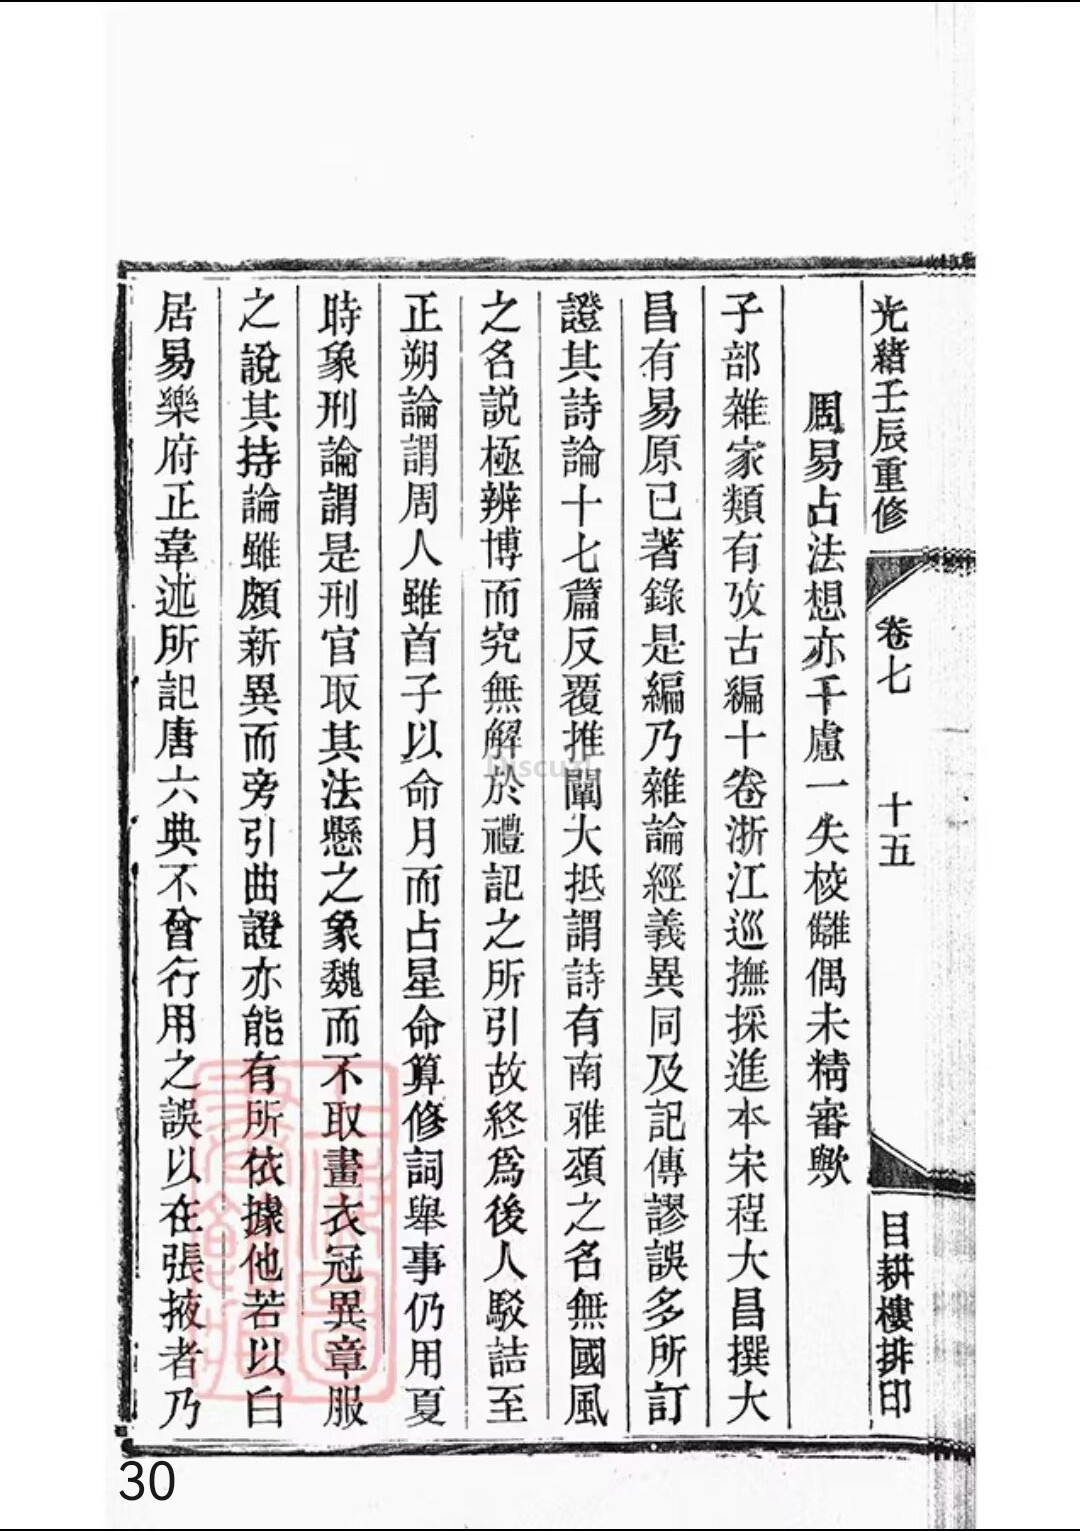 光緒壬辰重修
卷七
十五
目耕樓排印
周易占法想亦千慮一失校讎偶未精審歟
子部雜家類有攷古編十卷浙江巡撫採進本宋程大昌撰大
昌有易原已著錄是編乃雜論經義異同及記傳謬誤多所訂
證其詩論十七篇反覆推闡大抵謂詩有南雅頌之名無國風
之名說極辨博而究無解於禮記之所引故終爲後人駁詰至
正朔論謂周人雖首子以命月而占星命算修詞舉事仍用夏
時象刑論謂是刑官取其法懸之象魏而不取畫衣冠異章服
之說其持論雖頗新異而旁引曲證亦能有所依據他若以白
居易樂府正韋述所記唐六典不曾行用之誤以在張掖者乃
Discuz!
30